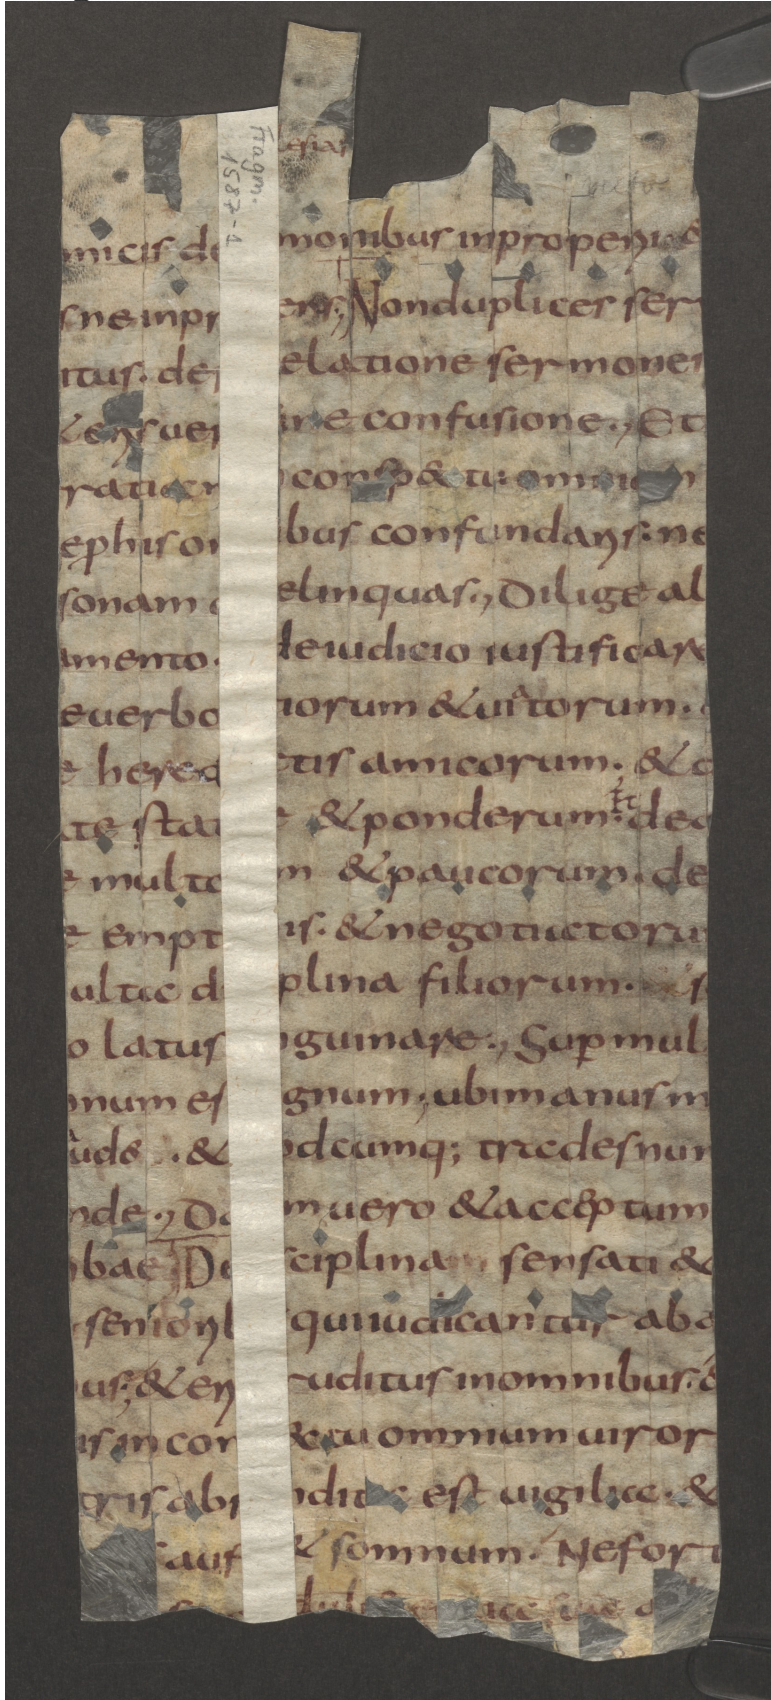 Fragm. 1587-1
lesias
micis de monibus inproperii &
sne inpr eris; Non duplices ser
itus. de elatione sermones
& eris uer ine confusione., Et
ratiam conspectu omnium
ephis om ibus confundaris: ne
sonam elinquas., Dilige al
amento. de iudicio iustificare
e uerbo iorum & uiatorum.
e hered tis amicorum. & c
ate stat & ponderum. Et de
e multo m & paucorum. de
e empt is. & negotiatoru
ulta d plina filiorum. s
o latus nguinare., Sup mul
onum es gnum; ubi manus m
aude . & odcumq; trades num
nde., Da m uero & acceptum
bae De sciplina sensati &
seniorib qui iudicantur ab a
us; & eri ruditus in omnibus. &
is in con & tu omnium uiror
tris abs ndita est uigilia. &
auf & somnum. Ne fort